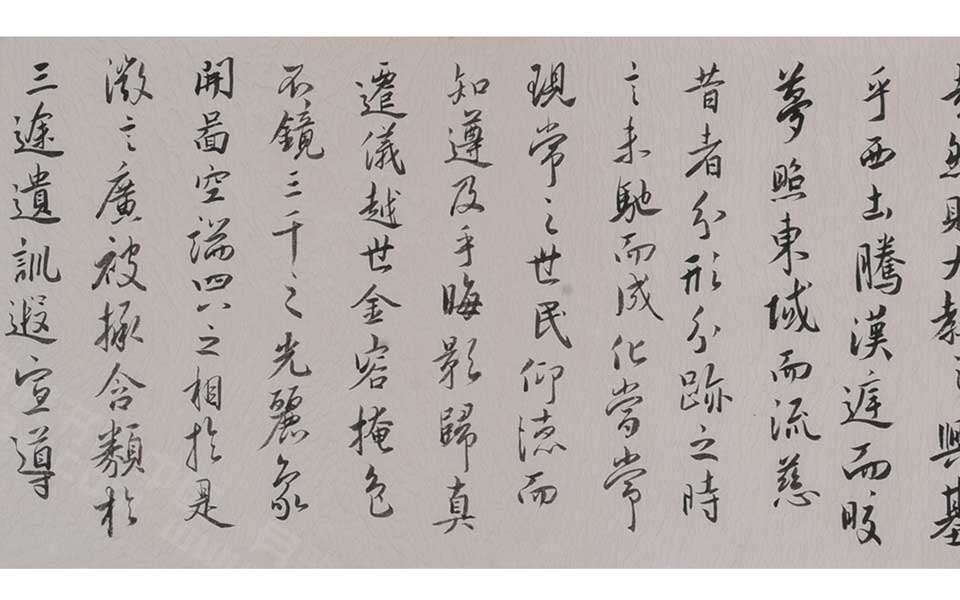 然則大教之興基
乎西土騰漢庭而皎
夢照東域而流慈
昔者分形分跡之時
言未馳而成化當常
現常之世民仰德而
知遵及乎晦影歸真
遷儀越世金容掩色
不鏡三千之光麗象
開圖空端四八之相於是
微言廣被拯含類於
三途遺訓遐宣導